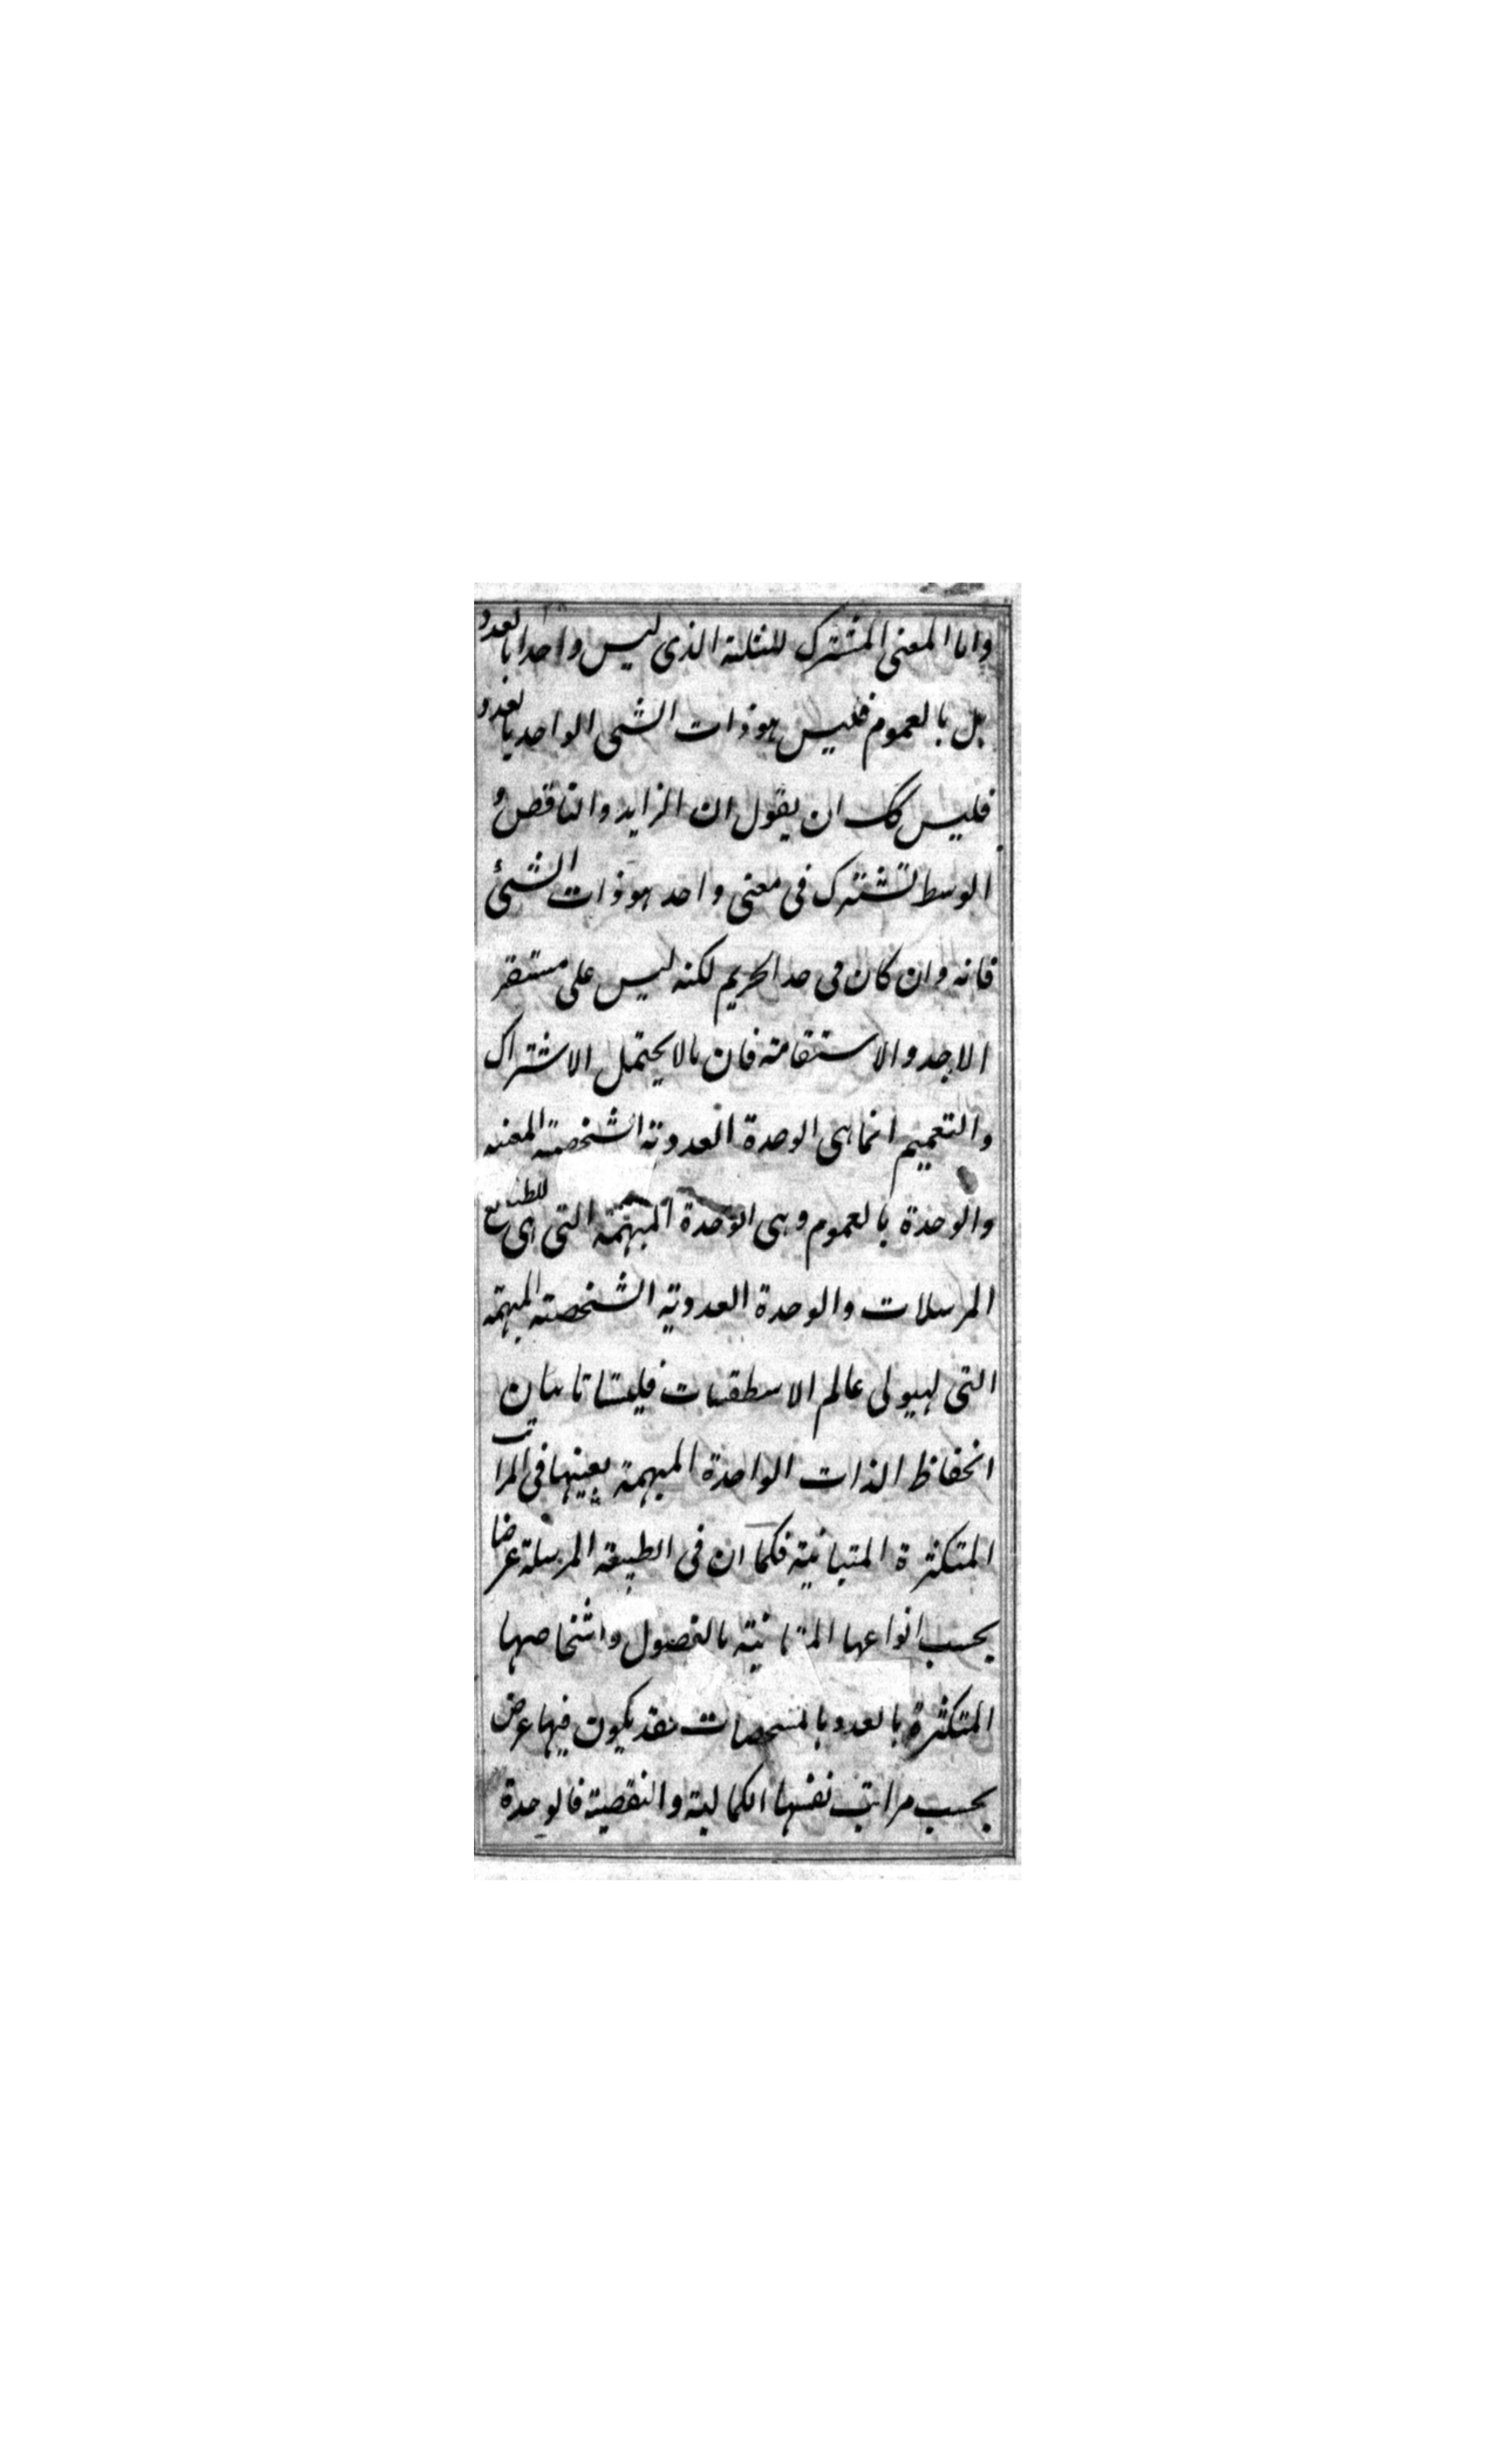 واما المعنى المشترك للثلثة الذى ليس واحدا بالعدد
بل بالعموم فليس هو ذات الشىء الواحد بالعدد
فليس لك ان يقول ان الزايد والناقص و
الوسط تشترك فى معنى واحد هو ذات الشئ
فانه وان كان فى حد الحريم لكنه ليس على مستقر
الاجد والاستقامة فان ما لا يحتمل الاشتراك
والتعميم انما هى الوحدة العددية الشخصية المعينه
والوحدة بالعموم وهى الوحدة المبهمة التى هى للطبايع
المرسلات والوحدة العددية الشخصية المبهمة
التى لهيولى عالم الاسطقسات فليستا تابيان
انحفاظ الذات الواحدة المبهمة بعينها فى المراتب
المتكثرة المتباينة فكما ان فى الطبيعة المرسلة عرضا
بحسب انواعها المتباينة بالفصول واشخاصها
المتكثرة بالعدد بالمشخصات فقد يكون فيها عرض
بحسب مراتب نفسها الكمالية والنقصية فالوحدة